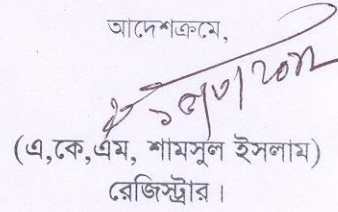 আদেশক্রমে,
(এ,কে,এম, শামসুল ইসলাম)
রেজিস্ট্রার।